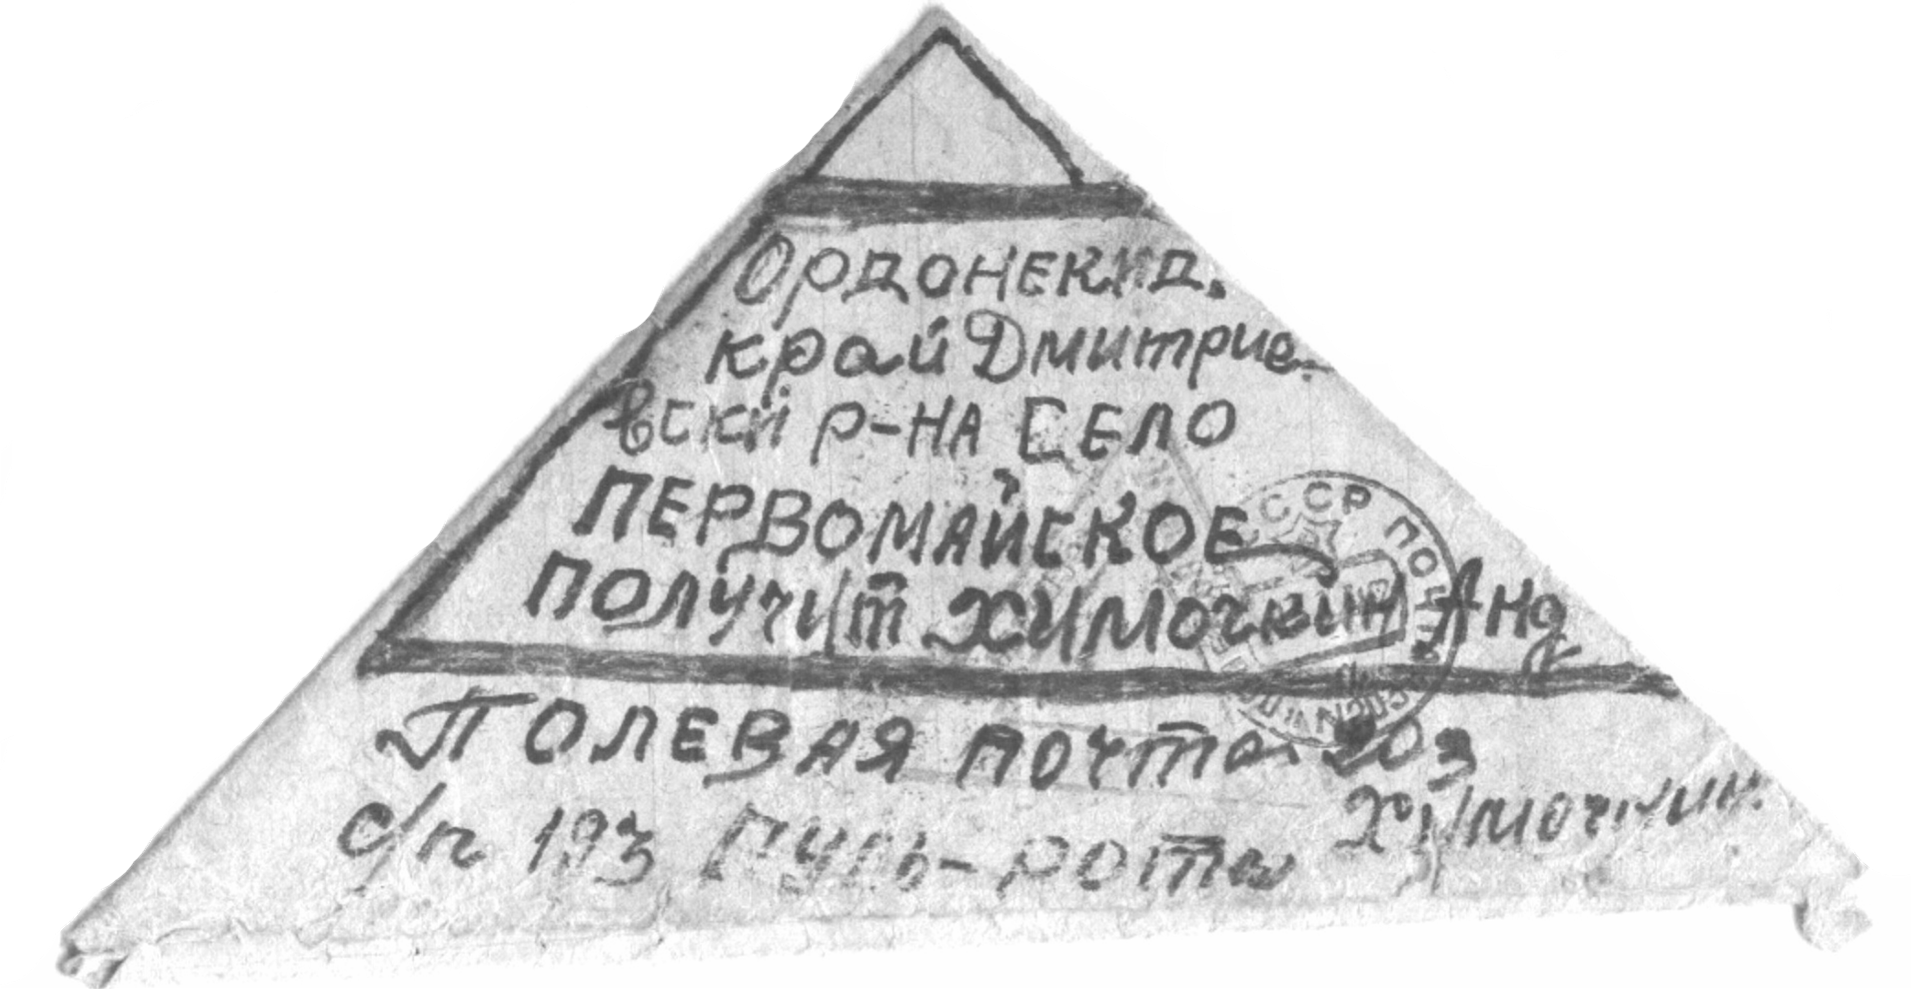 Ордонекид.
край Дмитрие-
вский р-на Село
ПЕРВОМАЙСКОЕ
получит Химочкин Анд
Полевая почта 203
с/п 193 Пуль-роты Химочкин
ССР ПОЧТА